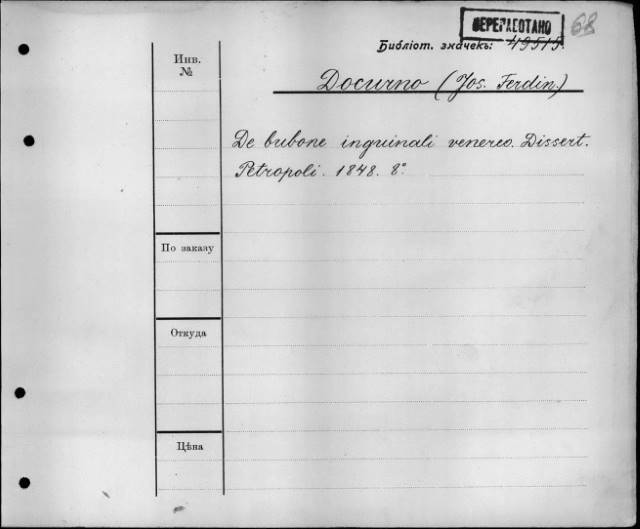 ПЕРЕРАБОТАНО
68
Библіот. значекъ: 49515.
Инв.
№
Docurno (Jos. Ferdin.)
De bubone inguinali venereo. Dissert.
Petropoli. 1848. 8°
По заказу
Откуда
Цѣна